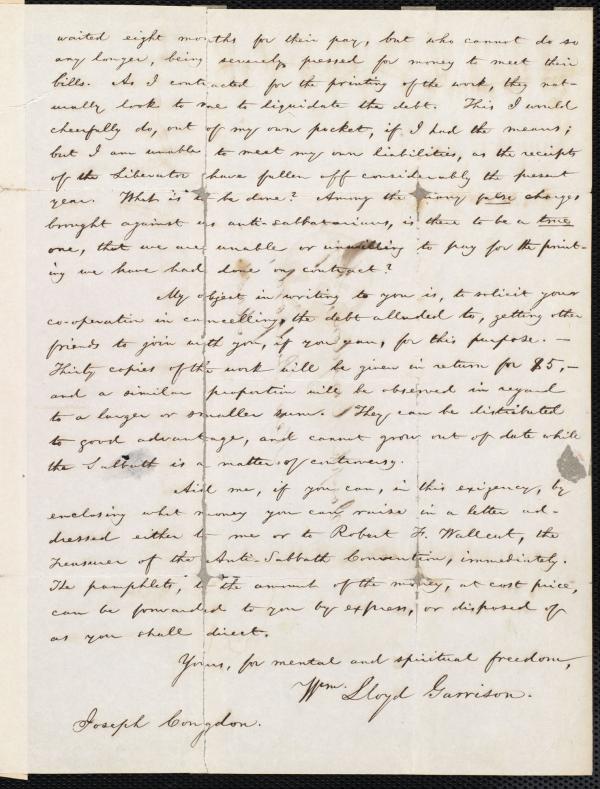 waited eight months for their pay, but who cannot do so
any longer, being severely pressed for money to meet their
bills. As I contracted for the printing of the work, they nat-
urally look to me to liquidate the debt. This I would
cheerfully do, out of my own pocket, if I had the means;
but I am unable to meet my own liabilities, as the receipts
of the Liberator have fallen off considerably the present
year. What is to be done? Among the many false charges
brought against us anti-sabbatarians, is there to be a true
one, that we are unable or unwilling to pay for the print-
ing we have had done on contract?
My object in writing to you is, to solicit your
co-operation in cancelling the debt alluded to, getting other
friends to join with you, if you can, for this purpose. —
Thirty copies of the work will be given in return for $5, —
and a similar proportion will be observed in regard
to a larger or smaller sum. They can be distributed
to good advantage, and cannot grow out of date while
the Sabbath is a matter of controversy.
Aid me, if you can, in this exigency, by
enclosing what money you can raise in a letter ad-
dressed either to me or to Robert F. Wallcut, the
Treasurer of the Anti-Sabbath Convention, immediately.
The pamphlets, to the amount of the money, at cost price,
can be forwarded to you by express, or disposed of
as you shall direct.
Yours, for mental and spiritual freedom,
Wm. Lloyd Garrison.
Joseph Congdon.